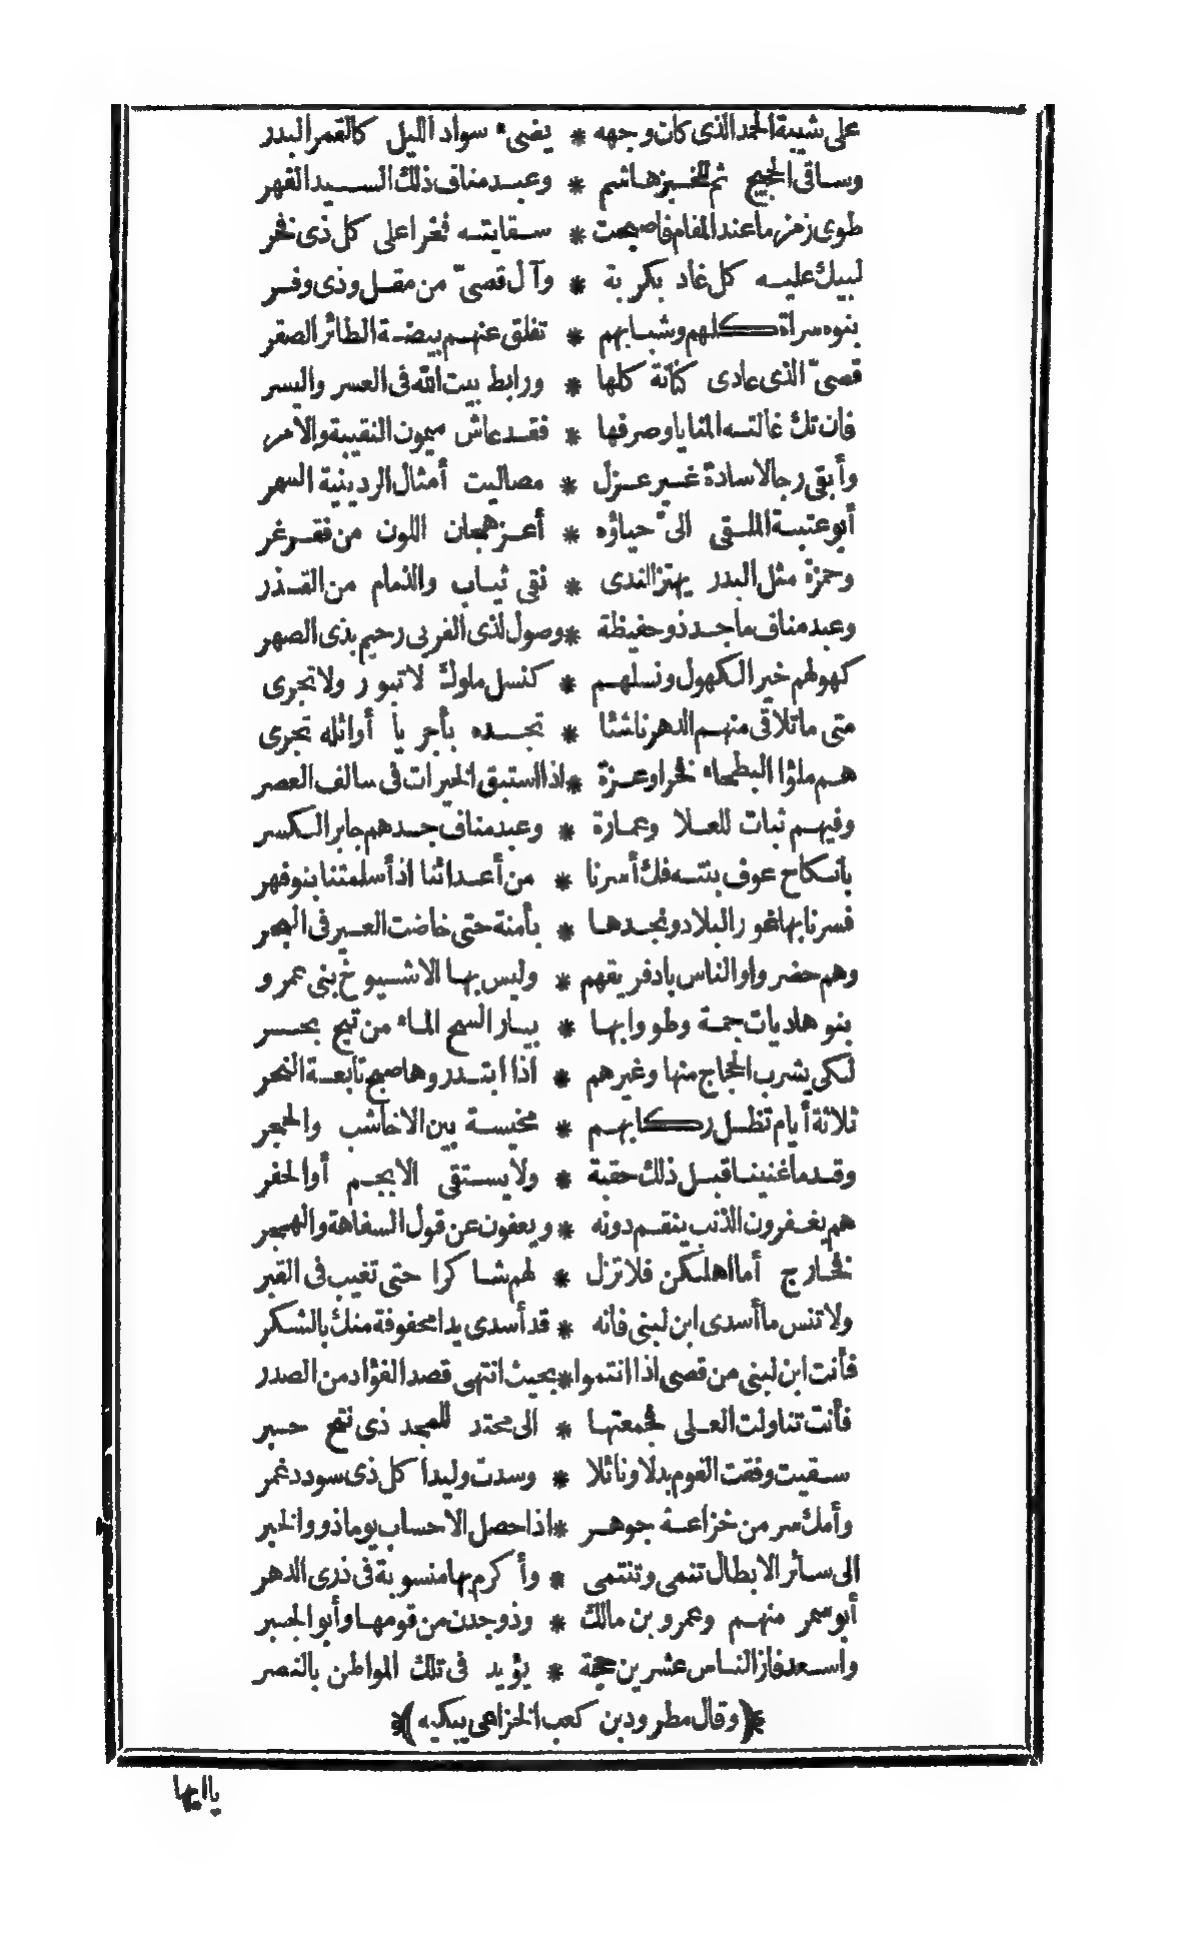 على شيبة الحمد الذى كان وجهه * يضىء سواد الليل كالقمر البدر
وساقى الحجيج ثم للخبز هاشم * وعبد مناف ذلك السيد الفهر
طوى زمزما عند المقام فاصبحت * سقايته فخرا على كل ذى فخر
لبيك عليه كل غاد بكربة * وآل قصىّ من مقل وذى وفر
بنوه سراة كلهم وشبابهم * تفلق عنهم بيضة الطائر الصقر
قصىّ الذى عادى كنانة كلها * ورابط بيت الله فى العسر واليسر
فان تك غالته المنايا وصرفها * فقد عاش ميمون النقيبة والامر
وأبقى رجالا سادة غير عزل * مصاليت أمثال الردينية السهر
أبو عتبة الملقى الىّ حياؤه * أعز هجان اللون من فقر غر
وحمزة مثل البدر يهتز الندى * نقى ثياب والذمام من القذر
وعبد مناف ماجد ذو حفيظة * وصول لذى القربى رحيم بذى الصهر
كهولهم خير الكهول ونسلهم * كنسل ملوك لا تبور ولا تجرى
متى ما تلاقى منهم الدهر ناشئا * تجده بأجريا أوائله تجرى
هم ملؤا البطحاء فخرا وعزة * اذا استبق الخيرات فى سالف العصر
وفيهم ثبات للعلا وعمارة * وعبد مناف جدهم جابر الكسر
بانكاح عوف بنته فك أسرنا * من أعدائنا اذ أسلمتنا بنو فهر
فسرنا بها غور البلاد ونجدها * بأمنة حتى خاضت العير فى البحر
وهم حضروا والناس باد فريقهم * وليس بها الا شيوخ بنى عمرو
بنو هاديات جمة وطووا بها * بيار السح الماء من ثبج بحر
لكى يشرب الحجاج منها وغيرهم * اذا ابتدروها صبح تابعة النحر
ثلاثة أيام تظل ركابهم * مخيسة بين الاخاشب والحجر
وقدما غنينا قبل ذلك حقبة * ولا يستقى الابجم أو الحفر
هم يغفرون الذنب ينقم دونه * ويعفون عن قول السفاهة والهجر
فخارج أما اهلكن فلا تزل * لهم شاكرا حتى تغيب فى القبر
ولا تنس ما أسدى ابن لبنى فانه * قد أسدى يدا محفوفة منك بالشكر
فأنت ابن لبنى من قصى اذا انتموا * بحيث انتهى قصد الفؤاد من الصدر
فأنت تناولت العلى فجمعتها * الى محتد للمجد ذى نفح حسبر
سقيت وفقت القوم بدلا ونائلا * وسدت وليدا كل ذى سودد غمر
وأمك سر من خزاعة جوهر * اذا حصل الاحساب يوما ذوو الخبر
الى سائر الابطال تنمى وتنتمى * وأكرم بها منسوبة فى ذرى الدهر
أبو سمر منهم وعمرو بن مالك * وذو جدن من قومها وأبو الجبر
واسعد فاز الناس عشرين حجة * يؤيد فى تلك المواطن بالنصر
*(وقال مطرود بن كعب الخزاعى يبكيه)*
يا ايها